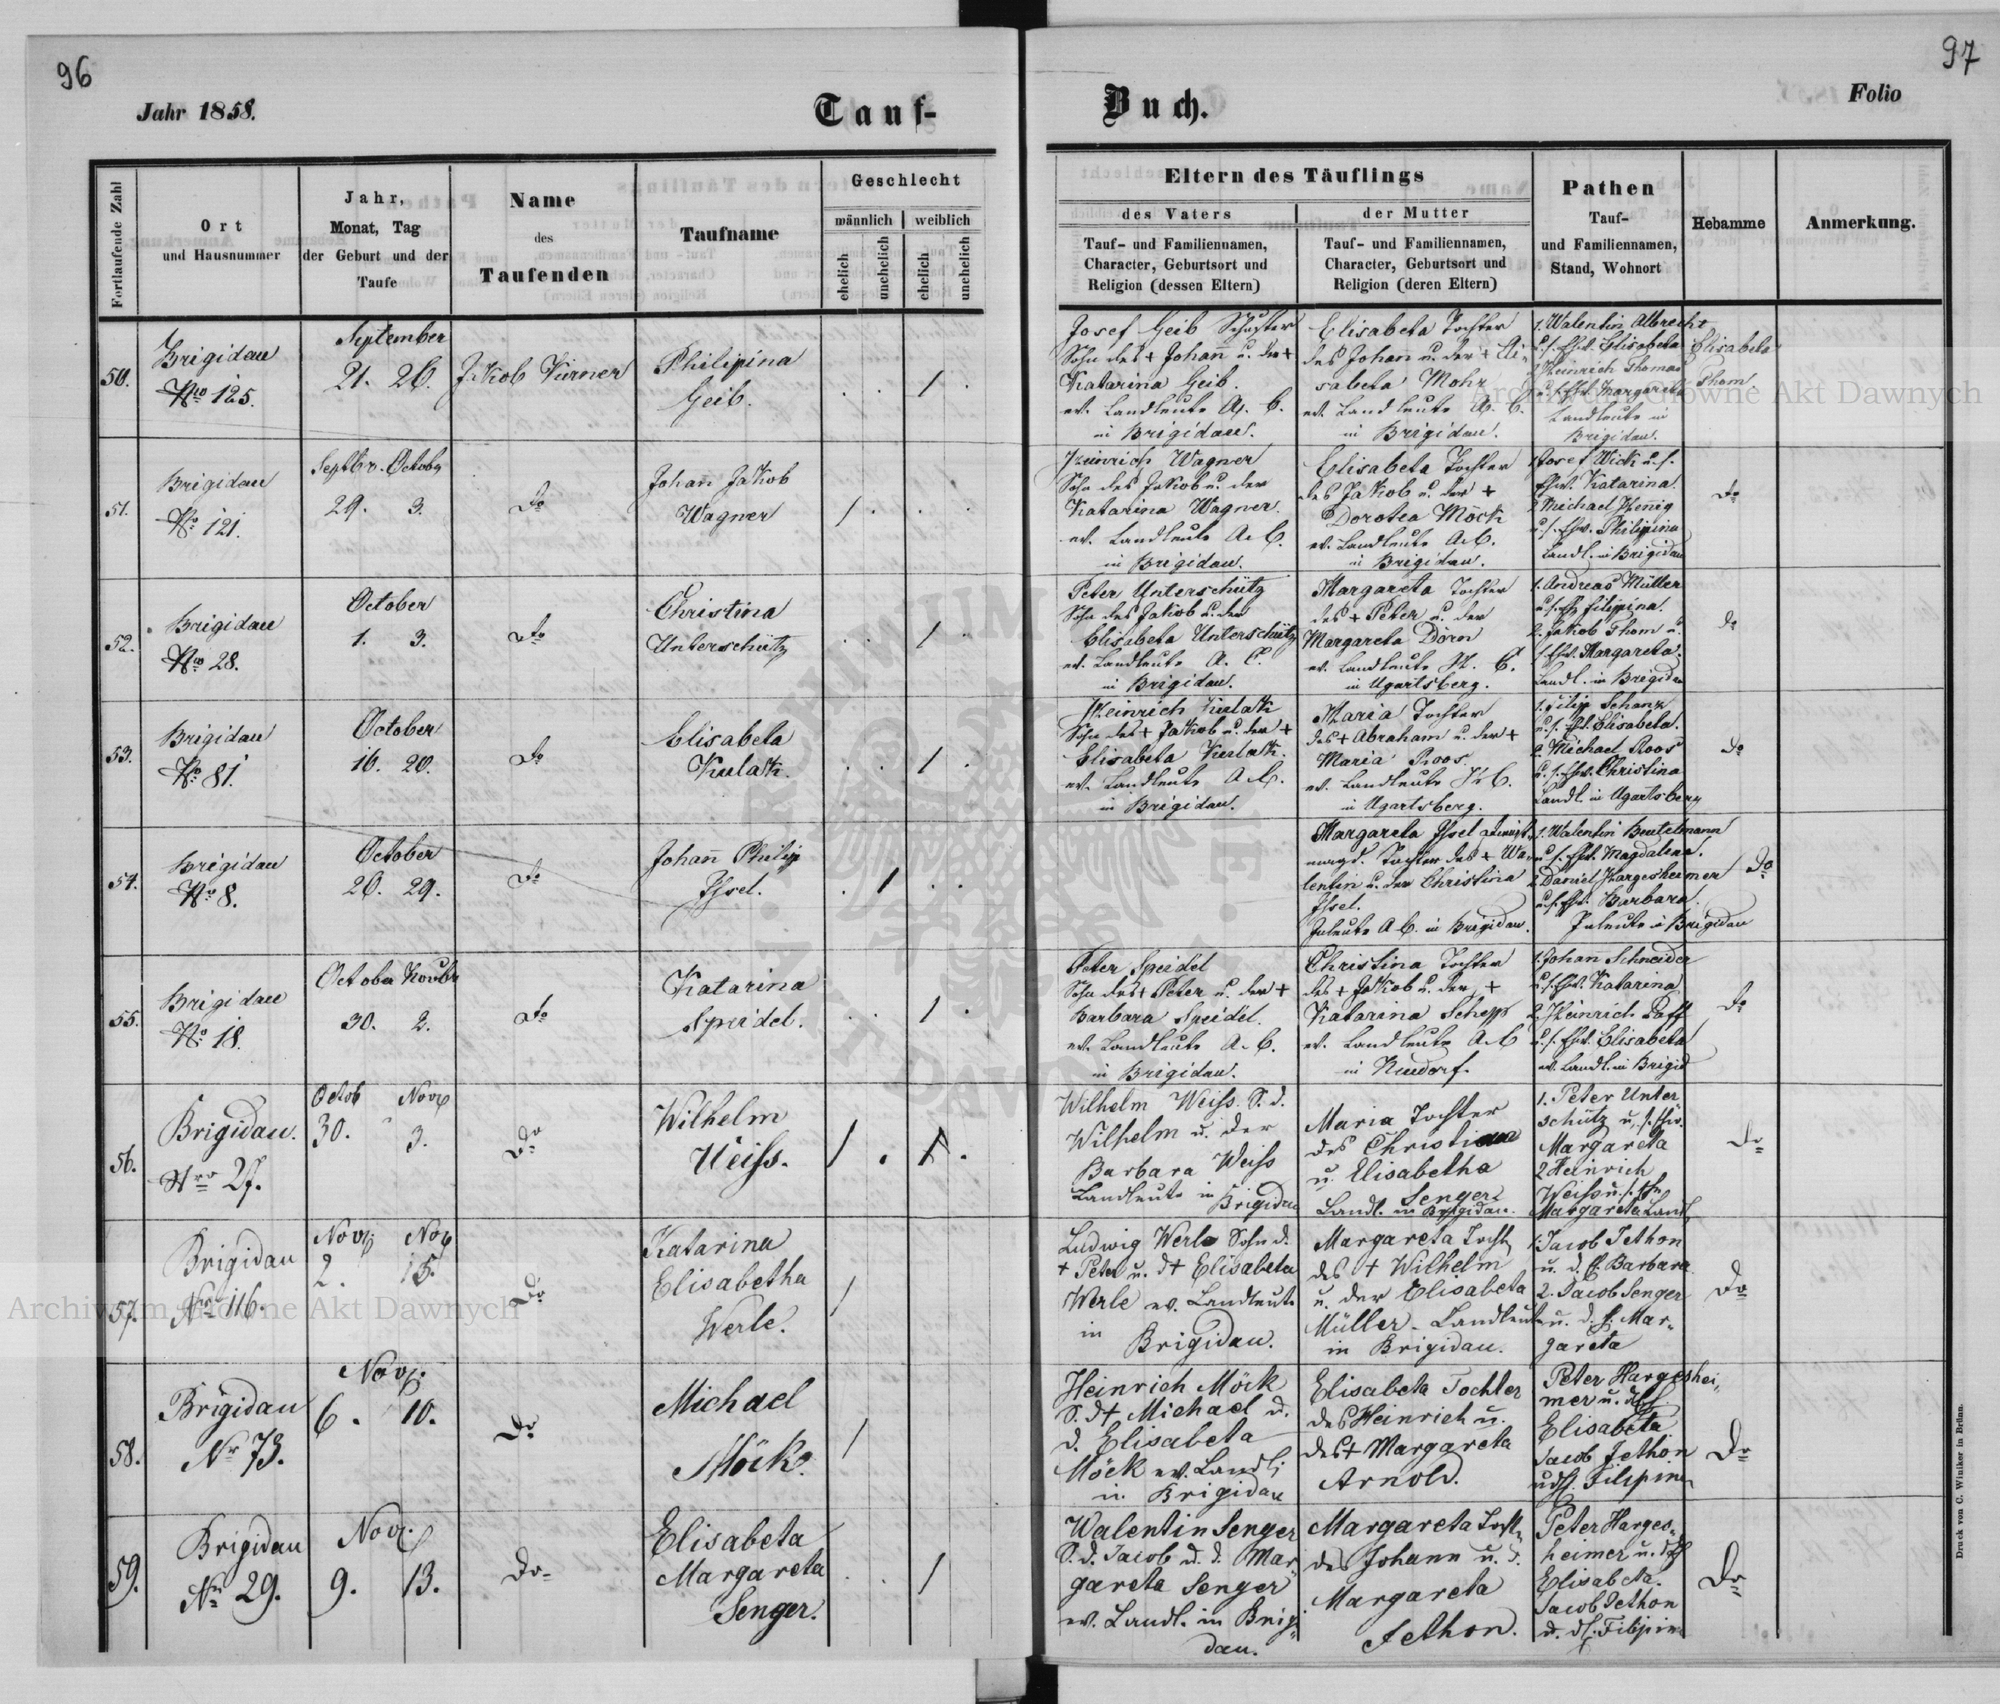 96
97
Jahr 1858.
Tauf-
Buch.
Folio
Fortlaufende Zahl
Ort
und Hausnummer
Jahr,
Monat, Tag
der Geburt und der
Taufe
Name
des
Taufenden
Taufname
Geschlecht
männlich
weiblich
ehelich
unehelich
ehelich
unehelich
Eltern des Täuflings
des Vaters
Tauf- und Familiennamen,
Character, Geburtsort und
Religion (dessen Eltern)
der Mutter
Tauf- und Familiennamen,
Character, Geburtsort und
Religion (deren Eltern)
Pathen
Tauf-
und Familiennamen,
Stand, Wohnort
Hebamme
Anmerkung.
50.
Brigidau
Nro 125.
September
21. 26.
Jakob Kürner
Philipina
Geib.
Josef Geib Schuster
Sohn des + Johann u. der +
Katarina Geib.
ev. Landleute A. C.
in Brigidau.
Elisabeta Tochter
des Johann u. der + Eli-
sabeta Mohr
ev. Landleute A. C.
in Brigidau.
1. Walentin Albrecht
u. s. Ehw. Elisabeta
2. Heinrich Thomas
u. s. Ehw. Margareta
Landleute in
Brigidau.
Elisabeta
Thom.
51.
Brigidau
No 121.
Septbr. October
29. 3.
do
Johann Jakob
Wagner
Heinrich Wagner
Sohn des Jakob u. der
Katarina Wagner.
ev. Landleute A. C.
in Brigidau.
Elisabeta Tochter
des Jakob u. der +
Dorotea Möck
ev. Landleute A. C.
in Brigidau.
1. Josef Wick u. s.
Ehw. Katarina.
2. Michael Henig
u. s. Ehw. Philipina
Landl. in Brigidau
do
52.
Brigidau
Nro 28.
October
1. 3.
dto
Christina
Unterschütz
Peter Unterschütz
Sohn des Jakob u. der
Elisabeta Unterschütz
ev. Landleute A. C.
in Brigidau.
Margareta Tochter
des + Peter u. der
Margareta Dörn
ev. Landleute H. C.
in Ugartsberg.
1. Andreas Müller
u. s. Eh. Filipina.
2. Jakob Thom u.
s. Ehw. Margareta.
Landl. in Brigidau
do
53.
Brigidau
No 81.
October
16. 20.
do
Elisabeta
Kulak.
Heinrich Kulak
Sohn des + Jakob u. der +
Elisabeta Kulak.
ev. Landleute A. C.
in Brigidau.
Maria Tochter
des + Abraham u. der +
Maria Roos.
ev. Landleute H. C.
in Ugartsberg.
1. Filip Schanz
u. s. Ehw. Elisabeta.
2. Michael Roos
u. s. Ehw. Christina
Landl. in Ugartsberg
do
54.
Brigidau
No 8.
October
26. 29.
do
Johann Philip
Issel.
Margareta Issel Dienst-
magd. Tochter des + Wa-
lentin u. der Christina
Issel.
Inleute A. C. in Brigidau.
1. Walentin Beutelmann
u. s. Ehw. Magdalena.
2. Daniel Hargesheimer
u. s. Ehw. Barbara.
Inleute in Brigidau
do
55.
Brigidau
No 18.
October Novbr
30. 2.
dto
Katarina
Speidel.
Peter Speidel
Sohn des + Peter u. der +
Barbara Speidel.
ev. Landleute A. C.
in Brigidau.
Christina Tochter
des + Jakob u. der +
Katarina Schepp
ev. Landleute A. C
in Neudorf.
1. Johan Schneider
u. s. Ehw. Katarina
2. Heinrich Paff
u. s. Ehw. Elisabeta
ev. Landl. in Brigid
do
56.
Brigidau.
Nro 27.
Octob Nov
30. 3.
Do
Wilhelm
Weiss.
Wilhelm Weiss. S. d.
Wilhelm u. der
Barbara Weiss
Landleute in
Brigidau
Maria Tochter
des Christian
u. Elisabetha
Senger
Landl. in Brigidau.
1. Peter Unter
schütz u. s. Ehw.
Margareta
2 Heinrich
Weiss u. s. Ehw.
Margareta Landl.
do
57.
Brigidau
Nro 116.
Nov. Nov
2. 15.
Do
Katarina
Elisabetha
Werle.
Ludwig Werle Sohn d.
+ Peter u. d + Elisabeta
Werle ev. Landleute
in
Brigidau.
Margareta Tocht.
des + Wilhelm
u. der Elisabeta
Müller - Landleute
in Brigidau.
1. Jacob Jethon
u. d. E. Barbara
2. Jacob Senger
u. d. E. Mar-
gareta
Do
58.
Brigidau
Nr 73.
Nov.
6. 10.
Do
Michael
Möck.
Heinrich Möck
S. d + Michael u.
d. Elisabeta
Möck ev. Landl.
in Brigidau
Elisabeta Tochter
des Heinrich u.
des + Margareta
Arnold.
Peter Hargeshei-
mer u. d. E.
Elisabeta
Jacob Jethon
u. d. E. Filipina
Do
59.
Brigidau
Nr 29.
Nov.
9. 13.
Do
Elisabeta
Margareta
Senger.
Walentin Senger
S. d. Jacob u. d. Mar-
gareta Senger
ev. Landl. in Brigi-
dau.
Margareta Tocht.
des Johann u. d.
Margareta
Jethon.
Peter Harges-
heimer u. d. E.
Elisabeta.
Jacob Jethon
u. d. E. Filipina
Do
Druck von C. Winiker in Brünn.
Archiwum Główne Akt Dawnych
Archiwum Główne Akt Dawnych